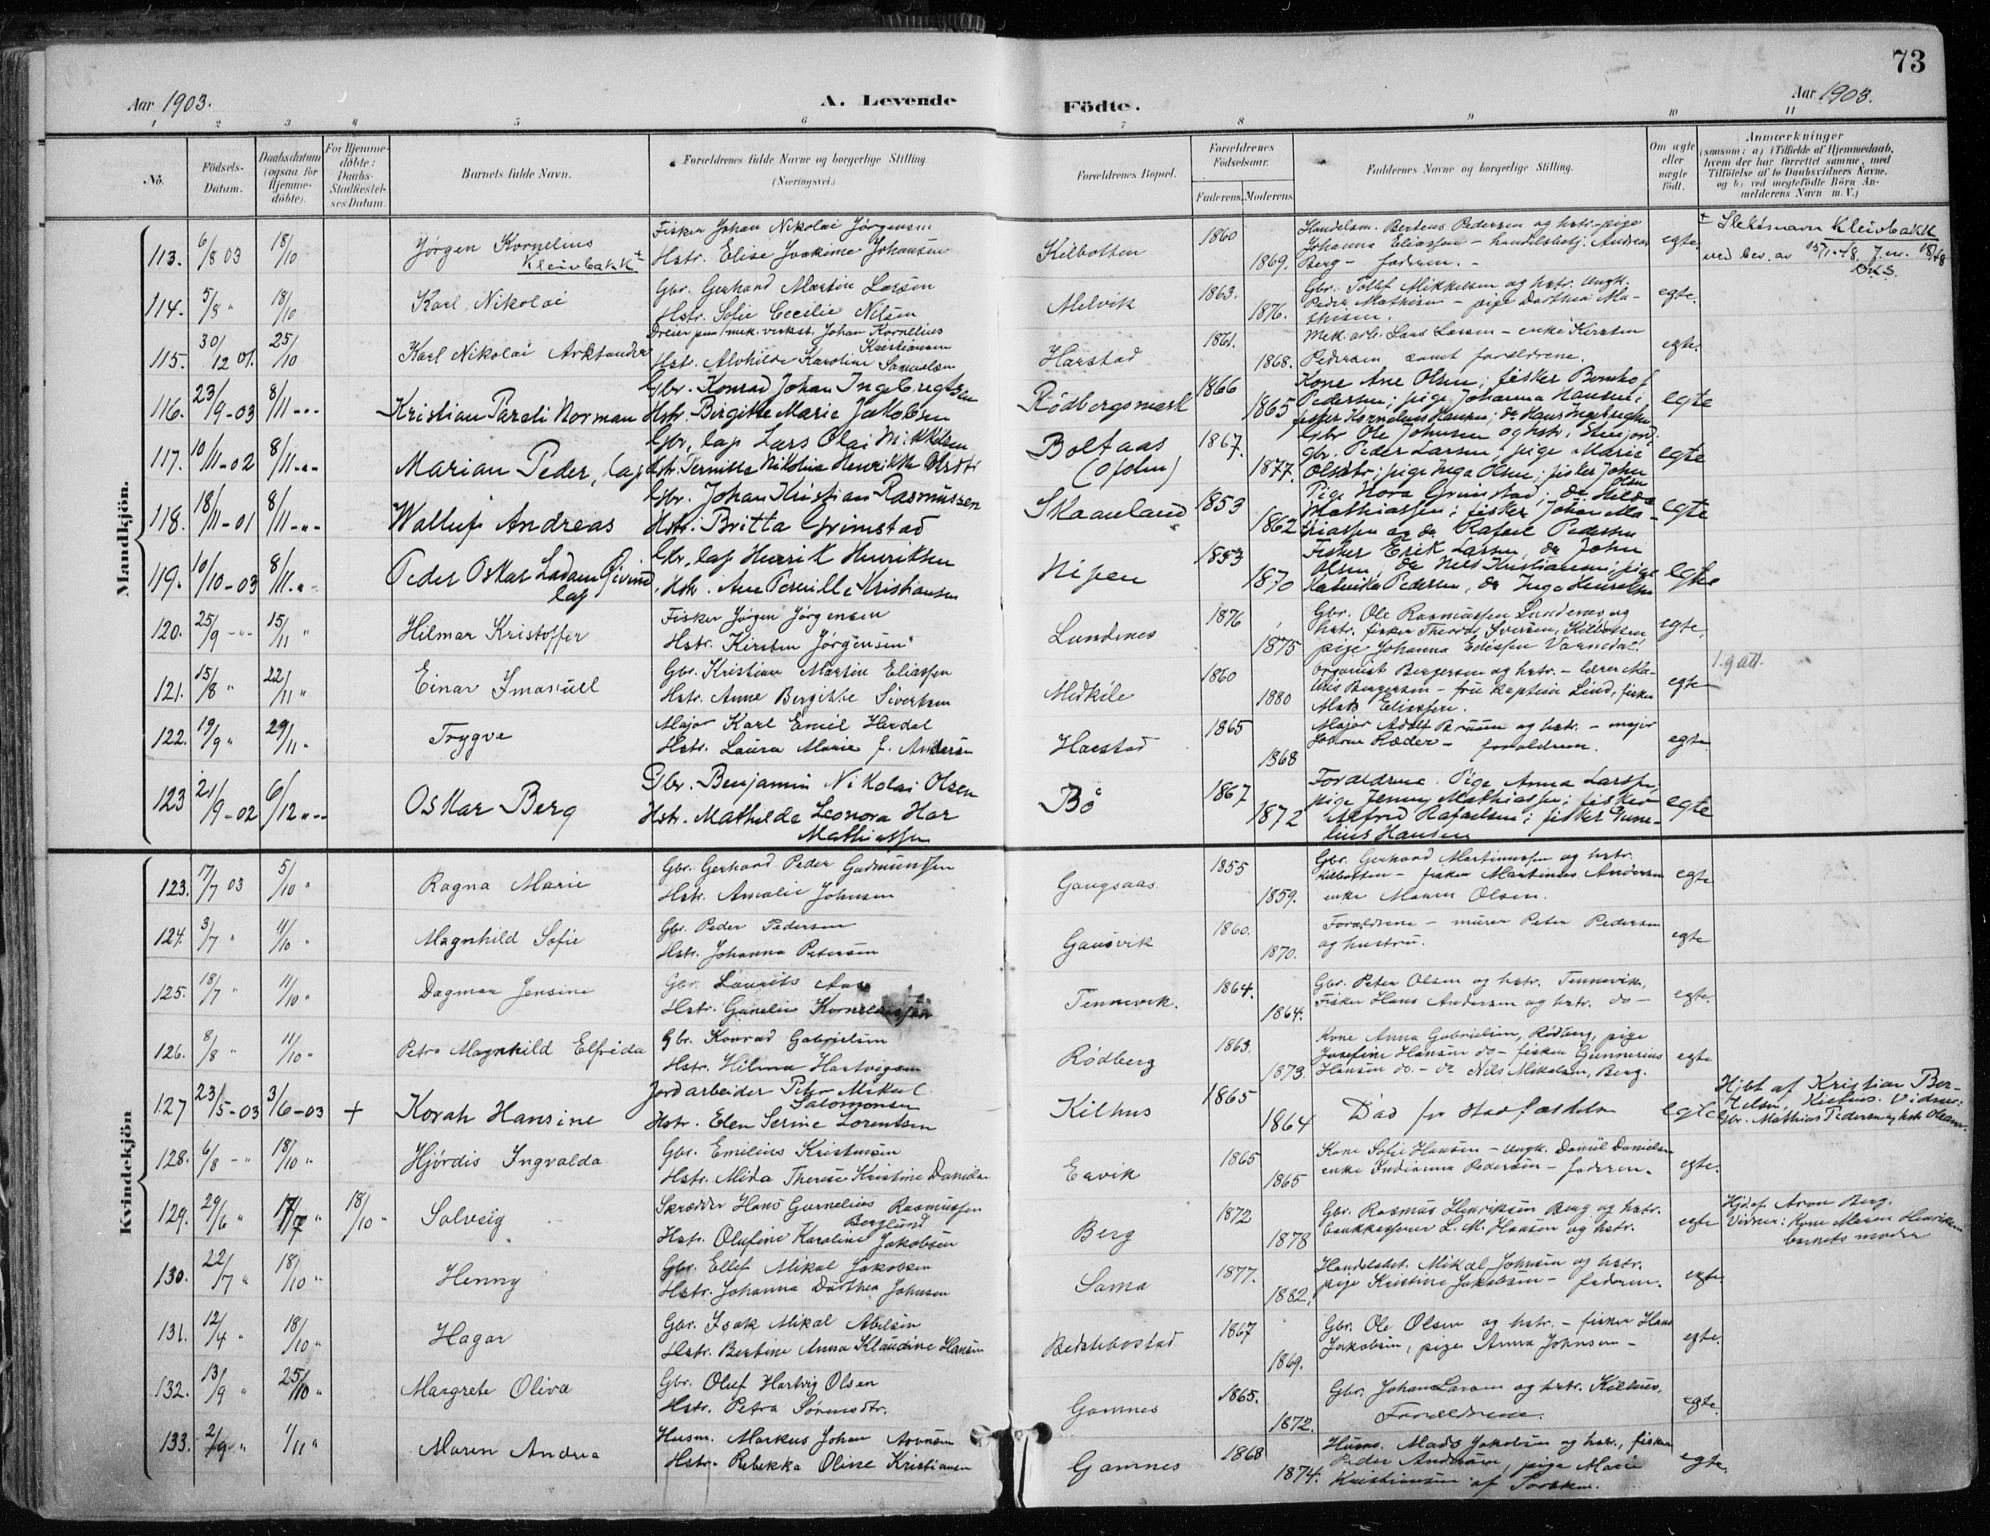 73
Aar 1903. A. Levende Födte. Aar 1903.
1 2 3 4 5 6 7 8 9 10 11
No. Födsels-Datum. Daabsdatum (ogsaa for Hjemme-döbte). For Hjemme-döbte: Daabs-Stadfæstel-ses Datum. Barnets fulde Navn. Forældrenes fulde Navne og borgerlige Stilling (Næringsvei.) Forældrenes Bopæl. Forældrenes Födselsaar. Faderens. Moderens. Faddernes Navne og borgerlige Stilling. Om ægte eller uægte födt. Anmærkninger (saasom: a) i Tilfælde af Hjemmedaab, hvem der har forrettet samme, med Tilföielse af to Daabsvidners Navne, og b) ved uægtefödte Börn An-melderens Navn m. V.)
Mandkjön.
113. 6/8 03 18/10 Jørgen Kornelius Fisker Johan Nikolai Jørgensen Kilbotten 1860 Handelsm. Bertens Pedersen og hstr. pige egte + Slektsnavn Kleivbakk
Kleivbakk + Hstr. Elise Joakime Johansen 1869. Johanna Eliassen - handelsbetj. Andreas Berg - faderen. - ved bev. av 15/1-48 J.nr. 18/48
114. 5/8 " 18/10 Karl Nikolai Gbr. Gerhard Martin Larsen Melvik 1863. Gbr. Tollef Mikkelsen og hstr. Ungk. egte.
Hstr. Sofie Cecilie Nilsen 1876. Peder Mathisen - pige Dorthea Ma-thisen.
115. 30/12 01. 25/10 Karl Nikolai Arktander Dreier paa mek. verkst. Johan Kornelius Kristiansen Harstad 1861. Mek. arb. Lars Larsen - enke Kirsten egte.
Hst. Alvhilde Karoline Samuelsen 1868. Pedersen samt forældrene.
116. 23/9-03 8/11 Kristian Pareli Norman Gbr. Konrad Johan Ingebregtsen Rödbergsmark 1866 Kone Ane Olsen; fisker Bernhof egte
Hstr. Birgitte Marie Jakobsen 1865 Pedersen; pige Johanna Hansen; fisker Kornelius Hansen; do Hans Ingebregtsen
117. 10/11-02 8/11 Marian Peder, lap Gbr, lap Lars Olai Mikkelsen Boltaas 1867. Gbr Ole Johnsen og hstr. Stenjord. egte
Hstr Pernille Nikoline Henrikke Olsdtr (Ofoten) 1877. Gbr. Peder Larsen; pige Marie Olsdtr; pige Inga Olsen; fisker John Olsen
118. 18/11-01 8/11 Walluf Andreas Gbr. Johan Kristian Rasmussen Skaanland 1853 Pige Nora Grimstad; do Hilda egte
Hstr. Britta Grimstad 1862 Mathiassen; fisker Johan Ma-thiassen og do Rafael Pedersen
119. 10/10-03 8/11 Peder Oskar Ladam Eivind lap Gbr, lap Henrik Henriksen Nipen 1853 Fisker Erik Larsen, do John egte
Hstr. Ane Pernille Kristiansen 1870 Olsen, do Nils Kristiansen; pige Katrine Pedersen, do Inga Henriksen
120. 25/9 15/11 " Hilmar Kristoffer Fisker Jørgen Jørgensen Lundenes 1876 Gbr. Ole Rasmussen Lundenes og egte.
Hstr. Kirsten Jørgensen 1875 hstr. fisker Theodor Iversen, Kilbotten, pige Johanna Edissen
121. 15/8 " 22/11 " Einar Imanuell Gbr. Kristian Martin Eliassen Medkile 1860 Organist Bergersen og hstr. - lærer egte 1 g att.
Hstr. Anne Bergitte Sivertsen 1880 Bergersen - frue kaptein Lind, fisker Mats Eliassen.
122. 19/9 " 29/11 " Trygve Major Karl Emil Herdal Harstad 1865 Major Adolf Bruun og hstr. - major egte
Hstr. Laura Marie f. Andersen 1868 Ræder - forældrene.
123 21/9-02 6/12 Oskar Berg Gbr. Benjamin Nikolai Olsen Bö 1867 Forældrene. Pige Anna Larsen, egte
Hstr. Mathilde Leonora Har Mathiassen 1872 pige Jenny Mathiassen; fisker Alfred Rafaelsen; fisker Gune-lius Hansen
Kvindekjön
123. 17/7 03 5/10 " Ragna Marie Gbr. Gerhard Peder Gudmundsen Gangsaas. 1855 Gbr. Gerhard Martinussen og hstr. egte
Hstr. Amalie Johnsen 1859. Kilbotten - fisker Martinus Andersen enke Maren Olsen.
124. 3/7 " 11/10 " Magnhild Sofie Gbr. Peder Pedersen Gausvik 1860. Forældrene - murer Peter Pedersen egte
Hstr. Johanna Petersen 1870. og hustru.
125. 18/7 " 11/10 " Dagmar Jensine Gbr. Laurits Aas Tennevik. 1864. Gbr. Peter Olsen og hstr. Tennevik, egte.
Hstr. Gunelie Korneliussen 1864. Fisker Hans Andersen og hstr. do -
126. 8/8 " 11/10 " Petra Magnhild Elfrida Gbr. Konrad Gabrielsen Rødberg 1863. Kone Anna Gabrielsen, Rødberg, pige egte
Hstr. Hilma Hartvigsen 1873. Josefine Hansen do - fisker Gunnerius Hansen do. - do Nils Mikalsen, Berg.
127 23/5-03 3/6-03 + Korah Hansine Jordarbeider Peter Mikal Salomonsen Kilhus 1865 Död før stadfæstelsen egte Hjbt af Kristian Ber-
Hstr. Elen Serine Lorentsen 1864 telsen, Kilhus. Vidner: Gbr. Mathias Pedersen og hstr Oleane.
128. 6/8 18/10 " Hjördis Ingvalda Gbr. Emilius Kristensen Ervik 1865 Kone Sofie Hansen - ungk. Daniel Danielsen egte.
Hstr. Mida Therese Kristine Danielsen 1865 enke Indianna Pedersen - faderen.
129. 29/6 " 17/7 " 18/10 " Solveig Skrædder Hans Gurnelius Rasmussen Berglund Berg 1872 Gbr. Rasmus Henriksen Berg og hstr. egte Hjd. af Aron Berg.
Hstr. Olufine Karoline Jakobsen 1878 bankkasserer L. M. Hansen og hstr. Vidner: Kone Maren Henriksen barnets moder
130. 22/7 " 18/10 " Henny Gbr. Ellef Mikal Jakobsen Sama 1877. Handelsbet. Mikal Johnsen og hstr. egte
Hstr. Johanna Dorthea Johnsen 1882. pige Kristine Jakobsen - faderen.
131. 12/4 " 18/10 " Hagar Gbr. Isak Mikal Abelsen 1867 Gbr. Ole Olsen og hstr. - fisker Hans egte.
Hstr. Bertine Anna Klaudine Hansen 1869. Jakobsen, pige Anna Johnsen -
132. 13/9 " 25/10 " Margrete Oliva Gbr. Oluf Hartvig Olsen Gamnes 1865. Gbr. Johan Larsen og hstr. Kilhus. egte.
Hstr. Petra Sörensdtr. 1872. Forældrene.
133. 2/9 " 1/11 " Maren Andrea Husm. Markus Johan Arvnsen Gamnes 1868 Husm. Mads Jakobsen og hstr., fisker egte.
Hstr. Rebekka Oline Kristiansen 1874. Peder Andersen, pige Marie Kristiansen af Torsken.